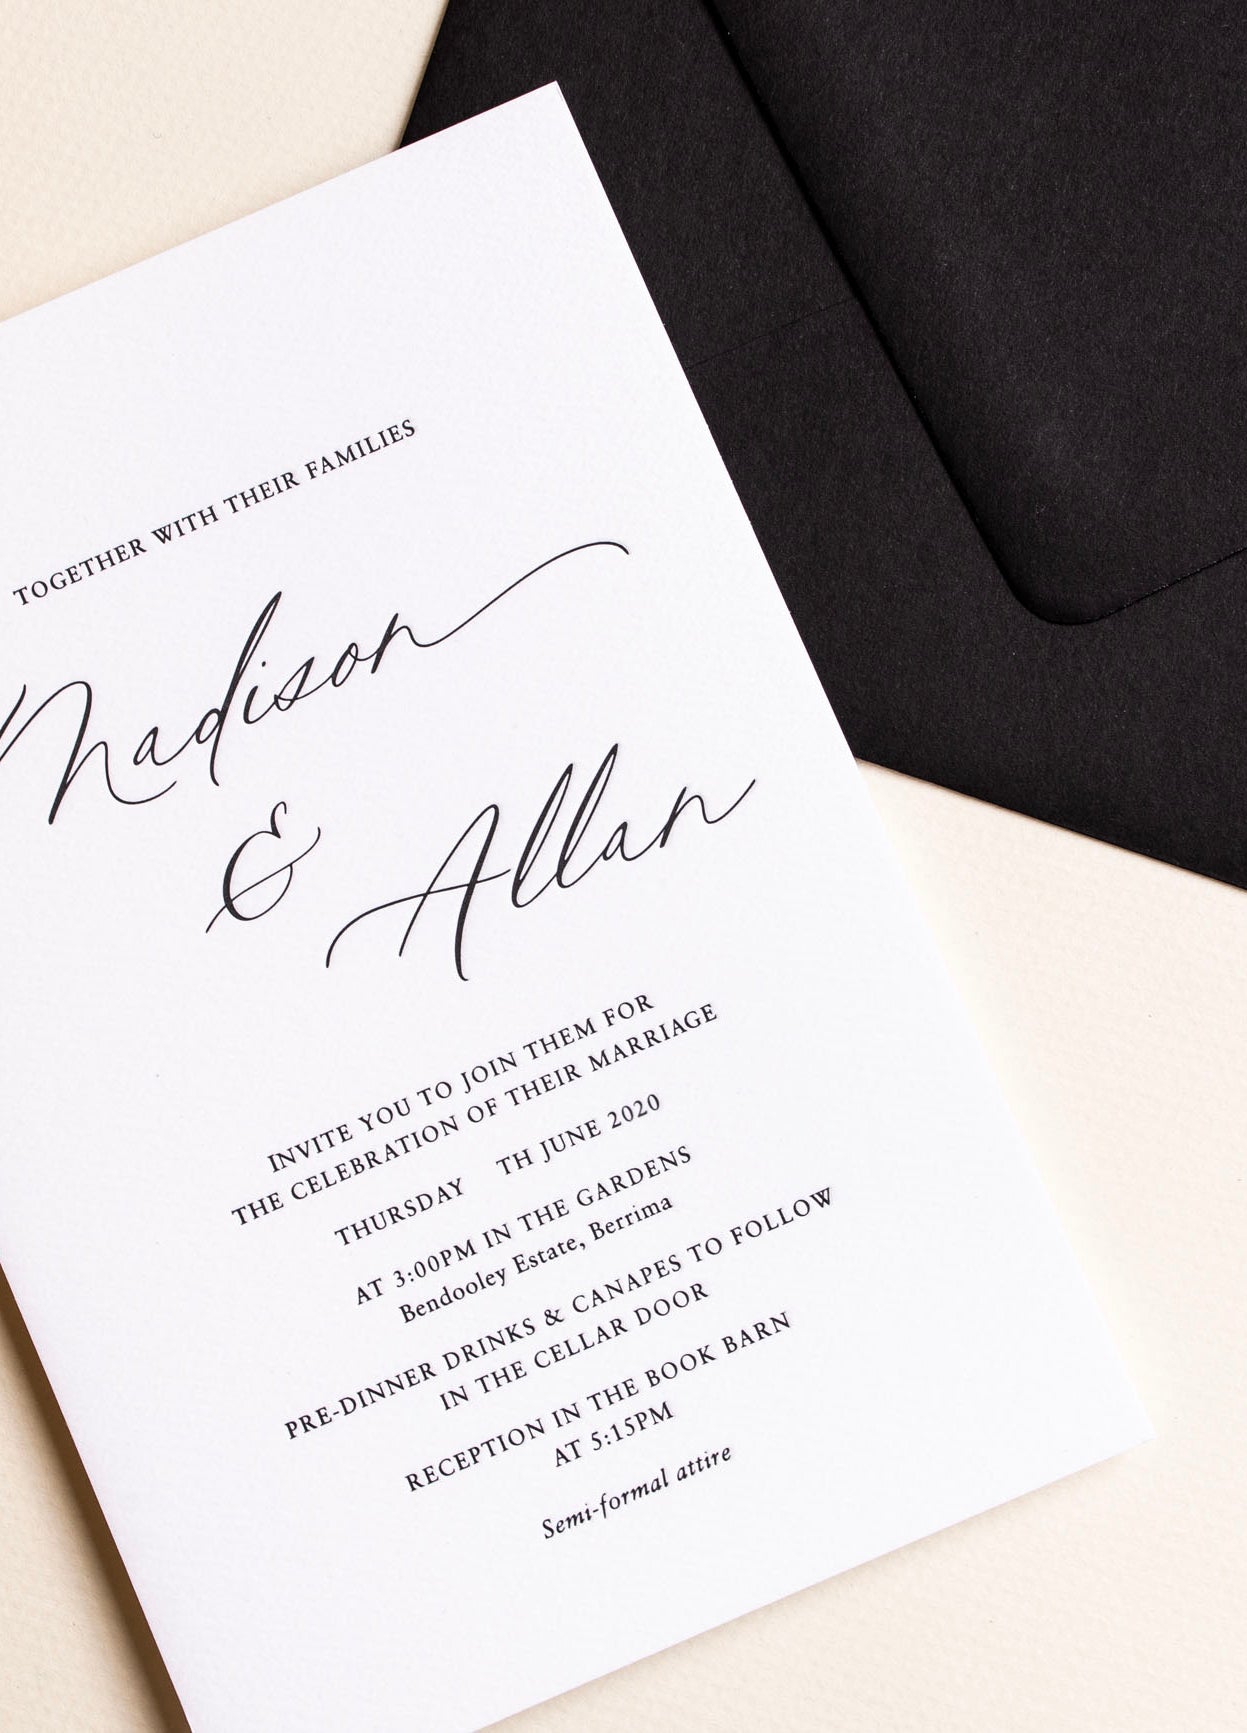 TOGETHER WITH THEIR FAMILIES
Madison
& Allan
INVITE YOU TO JOIN THEM FOR
THE CELEBRATION OF THEIR MARRIAGE
THURSDAY TH JUNE 2020
AT 3:00PM IN THE GARDENS
Bendooley Estate, Berrima
PRE-DINNER DRINKS & CANAPES TO FOLLOW
IN THE CELLAR DOOR
RECEPTION IN THE BOOK BARN
AT 5:15PM
Semi-formal attire